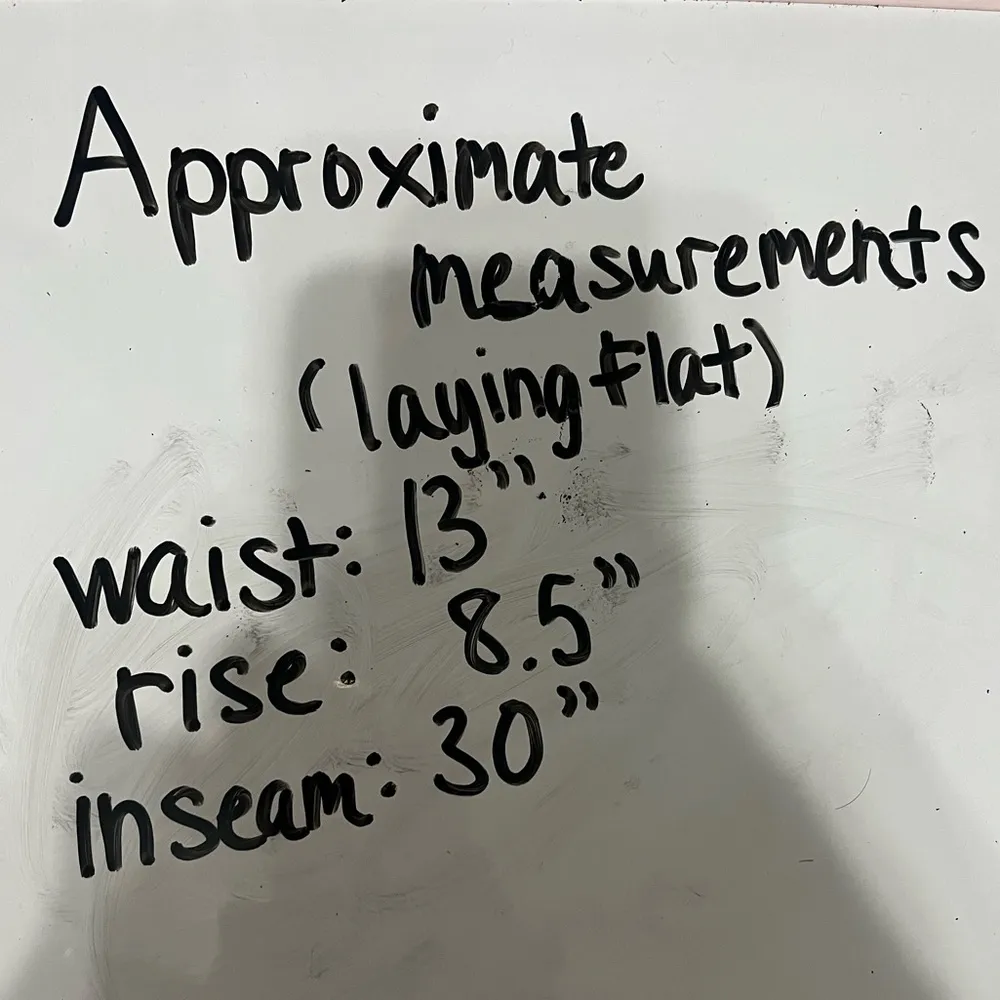 Approximate
measurements
(laying flat)
waist: 13"
rise: 8.5"
inseam: 30"